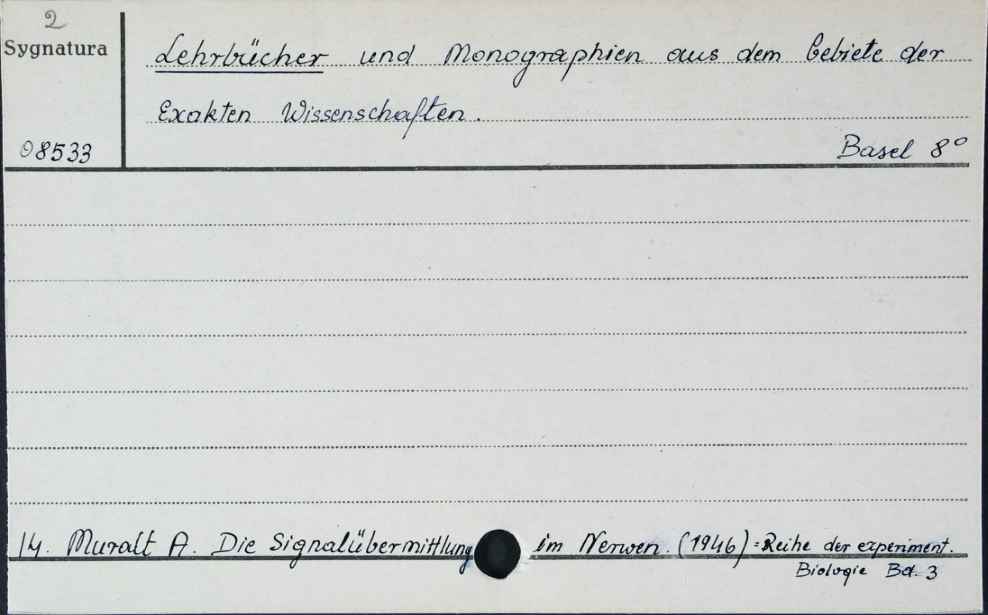 2
Sygnatura
08533
Lehrbücher und Monographien aus dem Gebiete der
Exakten Wissenschaften.
Basel 8°
14. Muralt A. Die Signalübermittlung im Nerwen. (1946) = Reihe der experiment.
Biologie Bd. 3